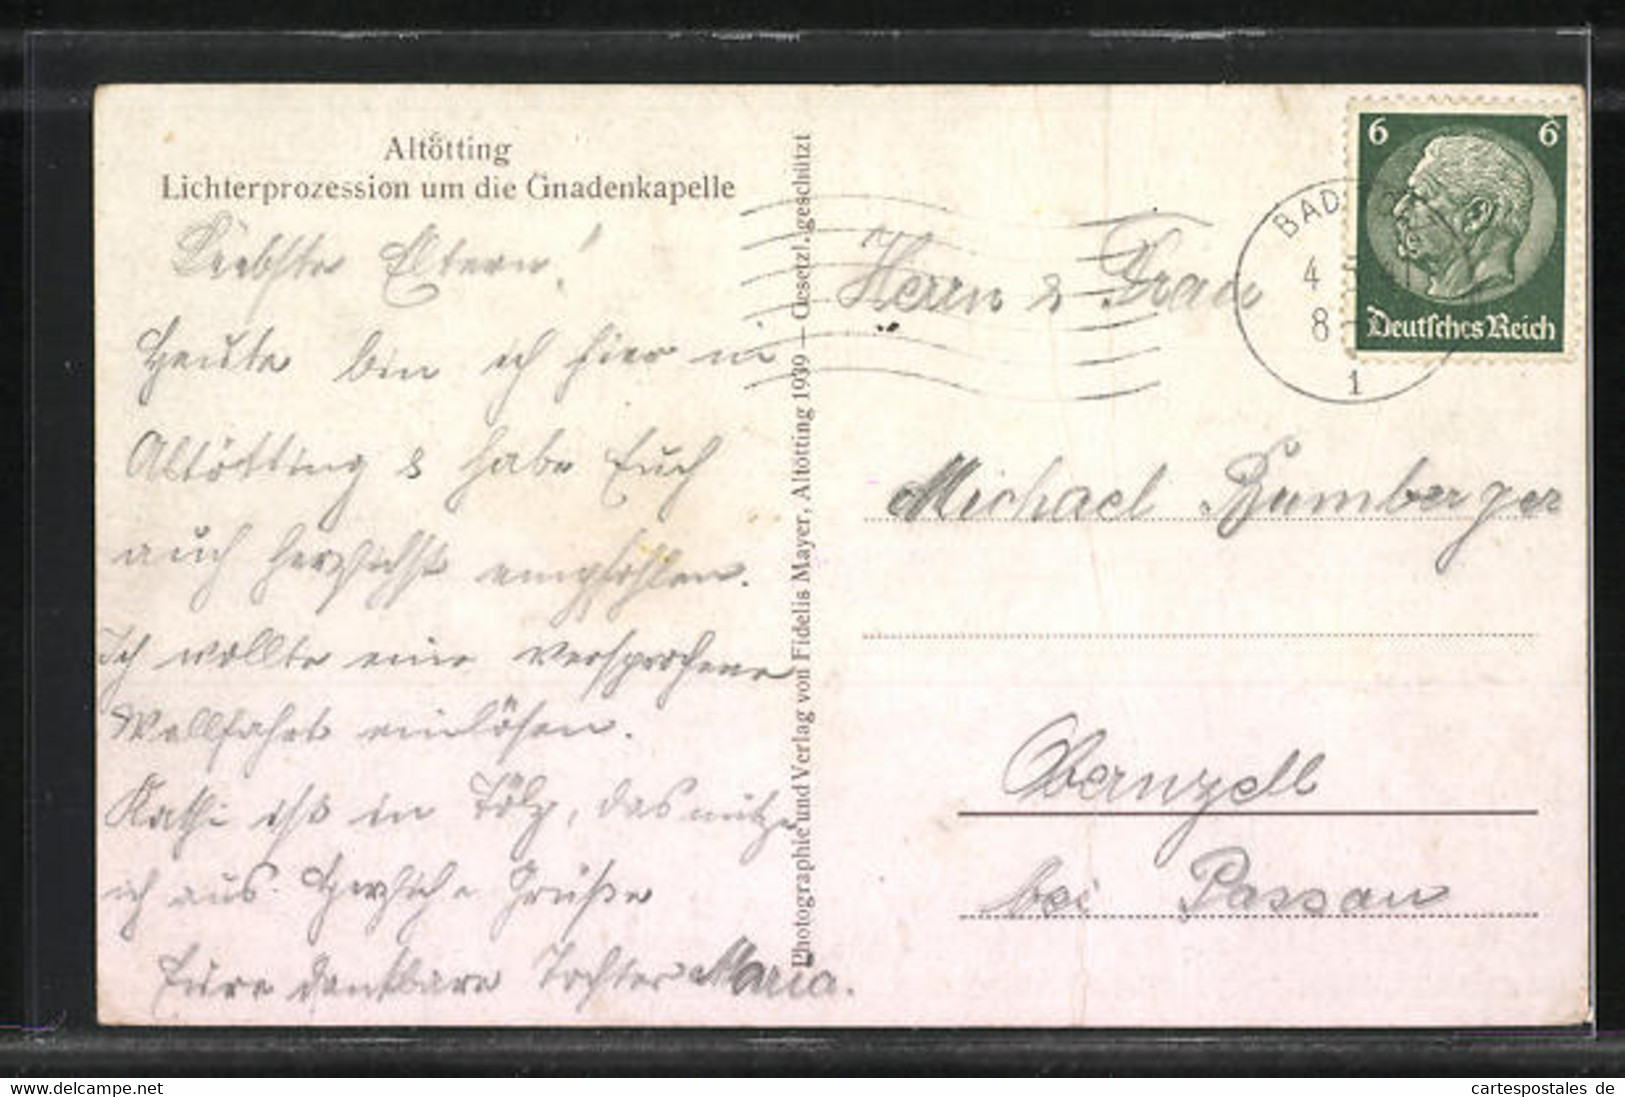 Altötting
Lichterprozession um die Gnadenkapelle
Liebste Eltern!
Heute bin ich hier in
Altötting & habe Euch
auch herzlichst empfohlen.
Ich wollte eine versprochene
Wallfahrt einlösen.
Kathi ist in Tölz, das nütze
ich aus. Herzliche Grüße
Eure dankbare Tochter Maria.
Photographie und Verlag von Fidelis Mayer, Altötting 1939 – Gesetzl. geschützt
Herrn & Frau
Michael Bumberger
Obernzell
bei Passau
6 6
Deutsches Reich
BAD
4
8
1
www.delcampe.net
cartespostales de